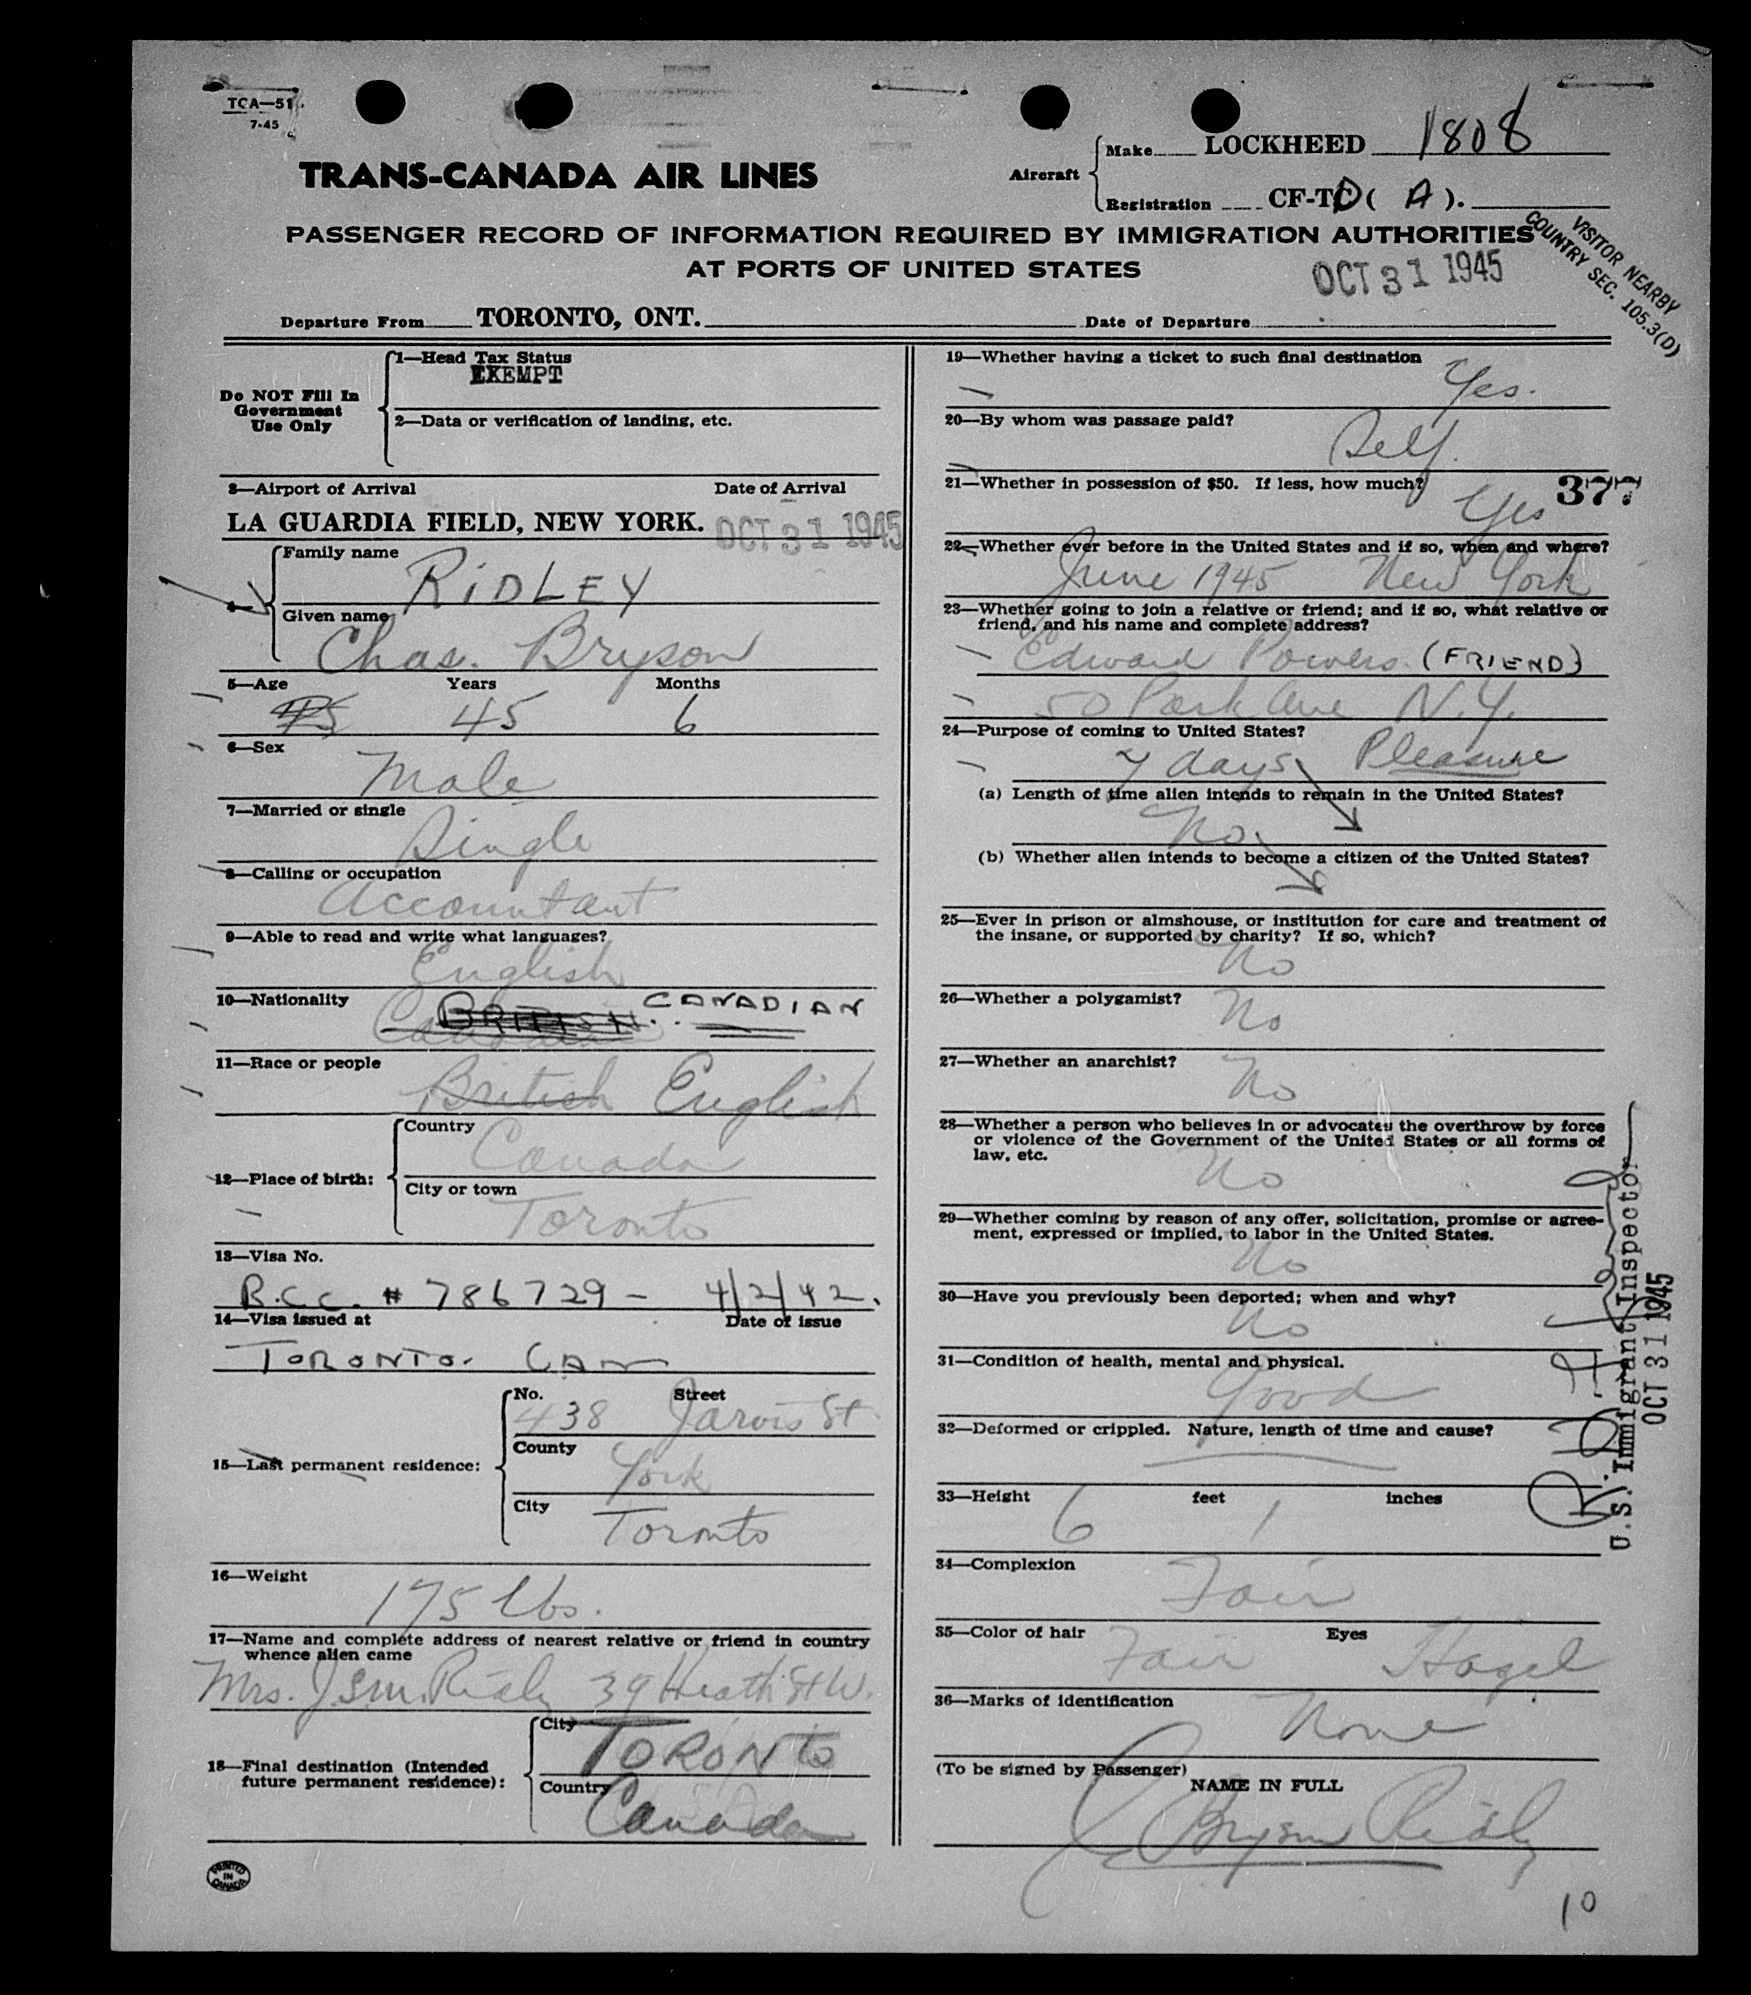 TCA—51
7-45
TRANS-CANADA AIR LINES
Aircraft
Make LOCKHEED 1808
Registration CF-TC D ( A ).
PASSENGER RECORD OF INFORMATION REQUIRED BY IMMIGRATION AUTHORITIES
AT PORTS OF UNITED STATES
VISITOR NEARBY
COUNTRY SEC. 105.3(D)
OCT 31 1945
Departure From TORONTO, ONT. Date of Departure
Do NOT Fill In
Government
Use Only
1—Head Tax Status
EXEMPT
2—Data or verification of landing, etc.
3—Airport of Arrival Date of Arrival
LA GUARDIA FIELD, NEW YORK. OCT 31 1945
Family name
RIDLEY
Given name
Chas. Bryson
5—Age Years Months
45 45 6
6—Sex
Male
7—Married or single
Single
8—Calling or occupation
Accountant
9—Able to read and write what languages?
English
10—Nationality
Canadian BRITISH. CANADIAN
11—Race or people
British English
12—Place of birth:
Country
Canada
City or town
Toronto
13—Visa No.
B.C.C. # 786729 - 4/2/42.
14—Visa issued at Date of issue
TORONTO. CAN
15—Last permanent residence:
No. Street
438 Jarvis St.
County
York
City
Toronto
16—Weight
175 lbs.
17—Name and complete address of nearest relative or friend in country
whence alien came
Mrs. Ridley 39 Heath St W.
18—Final destination (Intended
future permanent residence):
City
TORONTO
Country
Canada
PRINTED
IN
CANADA
19—Whether having a ticket to such final destination
Yes.
20—By whom was passage paid?
Self.
21—Whether in possession of $50. If less, how much?
Yes
377
22—Whether ever before in the United States and if so, when and where?
June 1945 New York
23—Whether going to join a relative or friend; and if so, what relative or
friend, and his name and complete address?
Edward Powers. (FRIEND)
50 Park Ave N.Y.
24—Purpose of coming to United States?
7 days Pleasure
(a) Length of time alien intends to remain in the United States?
No.
(b) Whether alien intends to become a citizen of the United States?
25—Ever in prison or almshouse, or institution for care and treatment of
the insane, or supported by charity? If so, which?
No
26—Whether a polygamist?
No
27—Whether an anarchist?
No
28—Whether a person who believes in or advocates the overthrow by force
or violence of the Government of the United States or all forms of
law, etc.
No
29—Whether coming by reason of any offer, solicitation, promise or agree-
ment, expressed or implied, to labor in the United States.
No
30—Have you previously been deported; when and why?
No
31—Condition of health, mental and physical.
Good
32—Deformed or crippled. Nature, length of time and cause?
33—Height feet inches
6 1
34—Complexion
Fair
35—Color of hair Eyes
Fair Hazel
36—Marks of identification
None
(To be signed by Passenger)
NAME IN FULL
C Bryson Ridley
U.S. Immigrant Inspector
OCT 31 1945
10